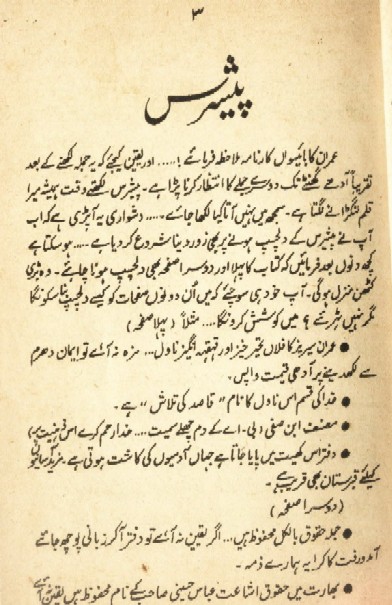 ۳
پیشرس
عمران کا بائیسواں کارنامہ ملاحظہ فرمائیے!..... اور یقین کیجئے کہ یہ جملہ لکھنے کے بعد
تقریباً آدھے گھنٹے تک دوسرے جملے کا انتظار کرنا پڑا ہے۔ پیشرس لکھتے وقت ہمیشہ میرا
قلم لنگڑانے لگتا ہے۔ سمجھ میں نہیں آتا کیا لکھا جائے..... دشواری یہ آپڑی ہے کہ اب
آپ نے پیشرس کے دلچسپ ہونے پر بھی زور دینا شروع کر دیا ہے.... ہو سکتا ہے
کچھ دنوں بعد فرمائیں کہ کتاب کا پہلا اور دوسرا صفحہ بھی دلچسپ ہونا چاہئے۔ وہ بڑی
کٹھن منزل ہوگی۔ آپ خود ہی سوچئے کہ میں اُن دونوں صفحات کو کیسے دلچسپ بنا سکونگا
مگر نہیں ٹھہرئیے ؟ میں کوشش کرونگا.... مثلاً (پہلا صفحہ)
● عمران سیریز کا فلاں تحیر خیز اور قہقہہ انگیز ناول... مزہ نہ آئے تو ایمان دھرم
سے لکھ دینے پر آدھی قیمت واپس۔
● خدا کی قسم اس ناول کا نام "قاصد کی تلاش" ہے۔
● مصنف ابن صفی (بی۔ اے کے دم چھلے سمیت.... خدا رحم کرے اس ذہنیت پر)
● دفتر اس کھیت میں پایا جاتا ہے جہاں آدمیوں کی کاشت ہوتی ہے۔ مزید آسانیوں
کیلئے قبرستان بھی قریب ہے۔
(دوسرا صفحہ)
● جملہ حقوق بالکل محفوظ ہیں... اگر یقین نہ آئے تو دفتر آکر زبانی پوچھ جائیے
آمد و رفت کا کرایہ ہمارے ذمہ۔
● بھارت میں حقوق اشاعت عباس حسینی صاحب کے نام محفوظ ہیں یقین نہ آئے